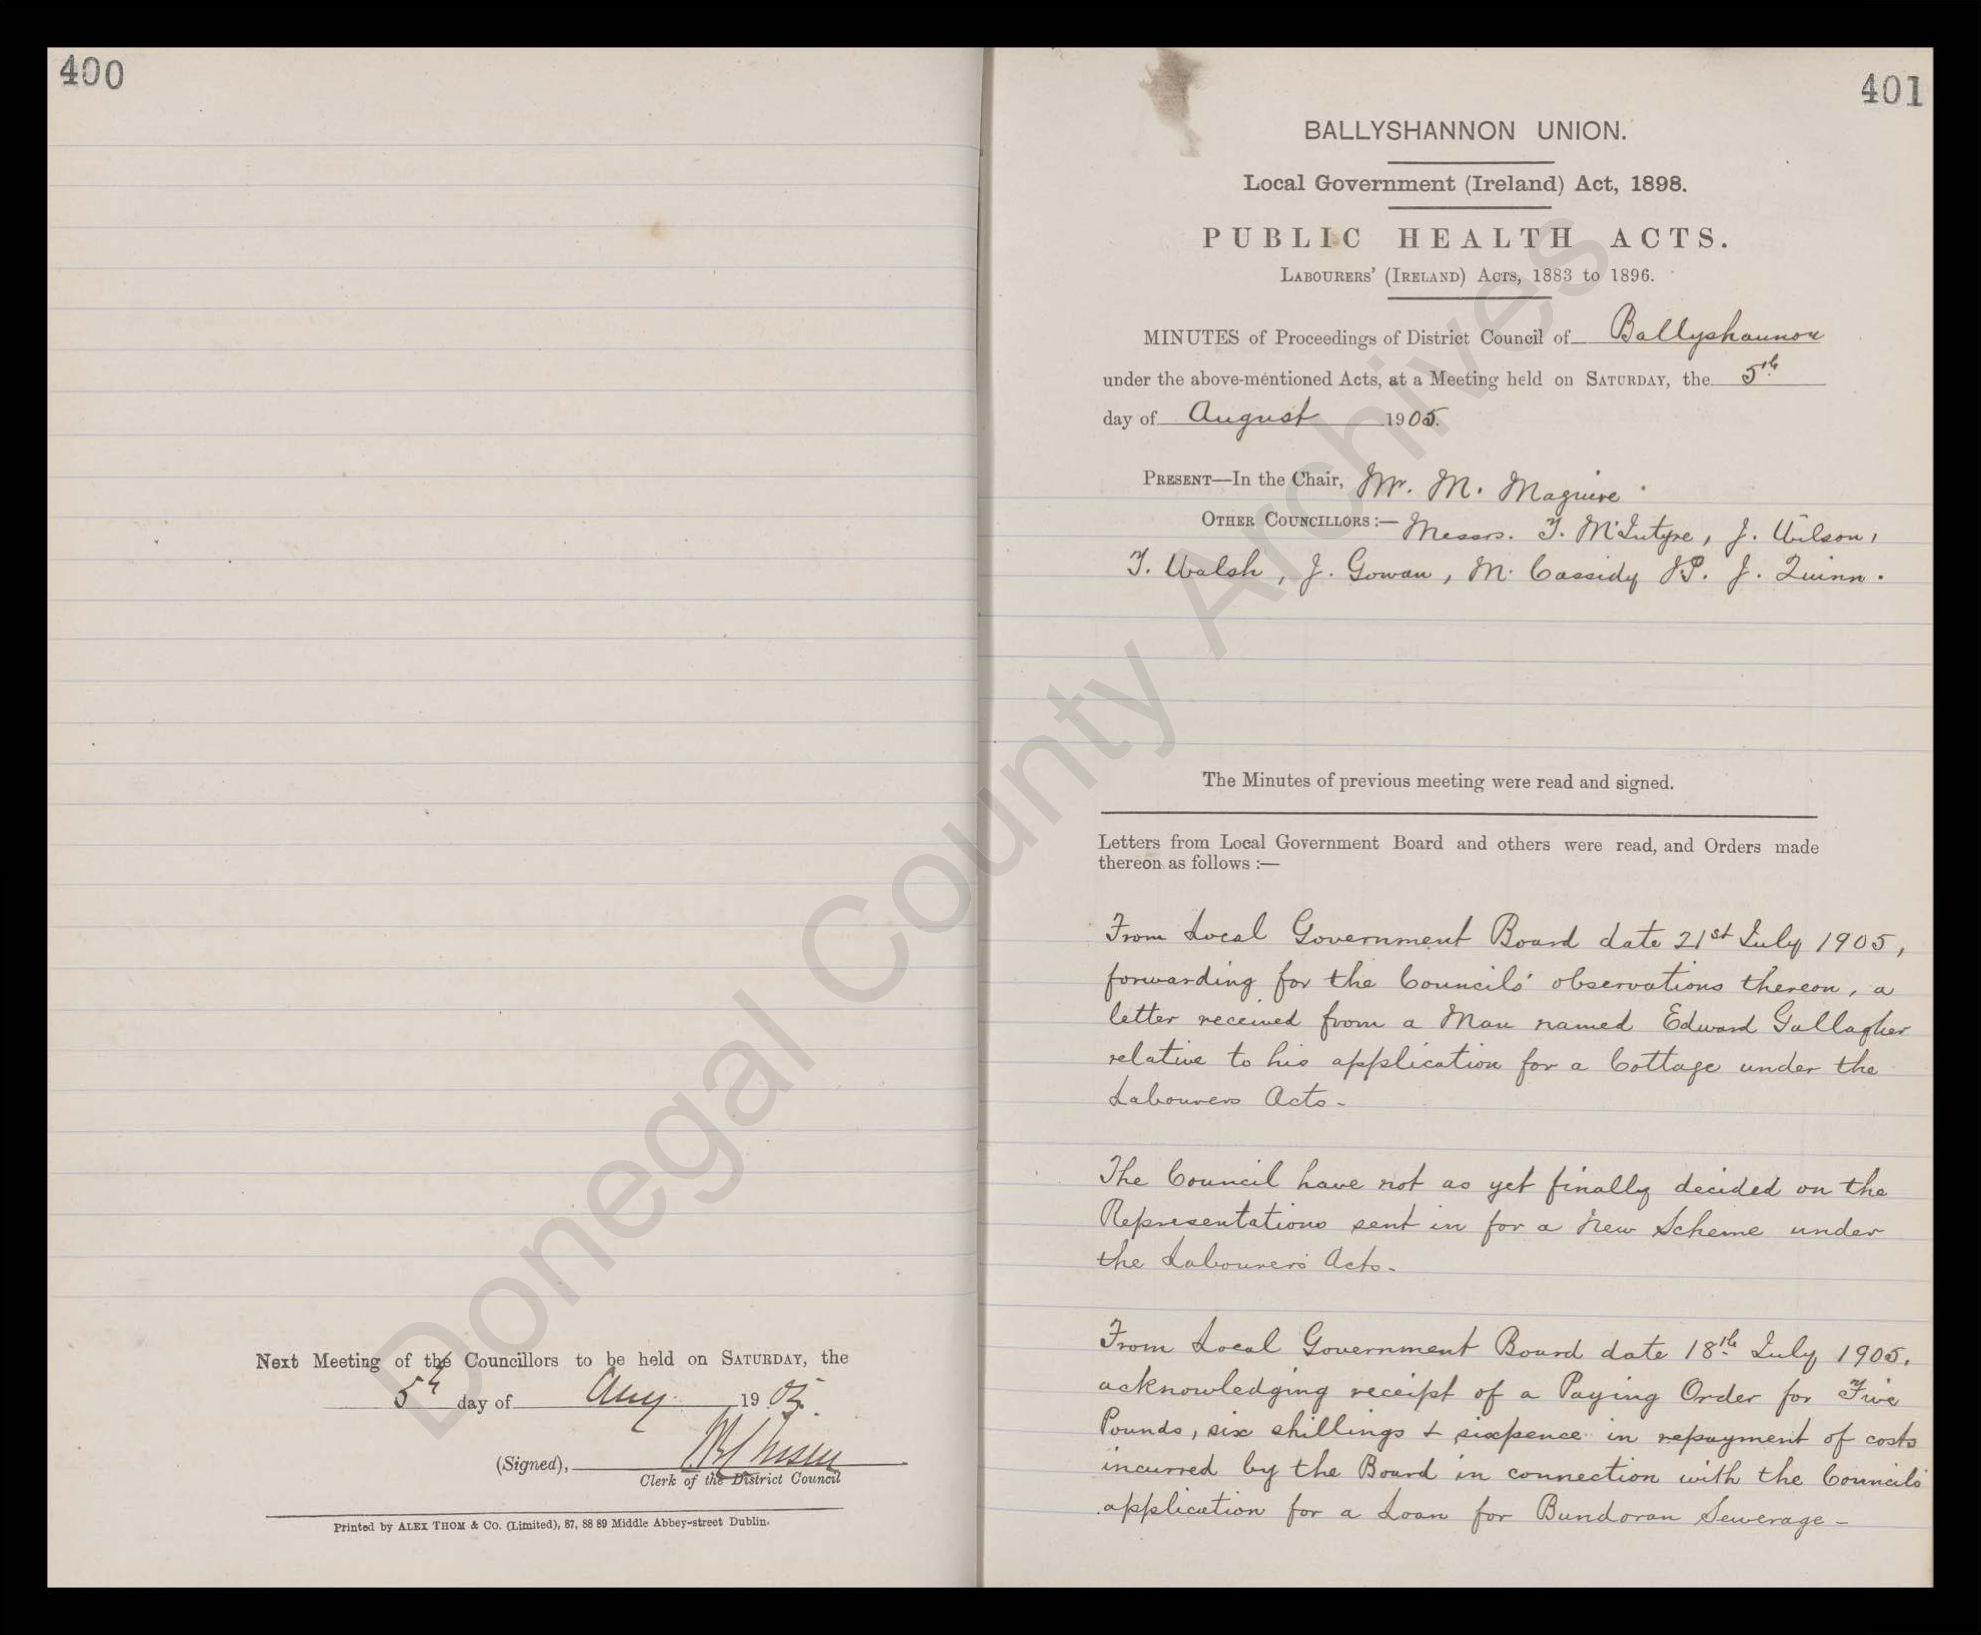 400
Next Meeting of the Councillors to be held on SATURDAY, the
5th day of Aug. 1905.
(Signed),
Clerk of the District Council
Printed by ALEX THOM & Co. (Limited), 87, 88 89 Middle Abbey-street Dublin.
401
BALLYSHANNON UNION.
Local Government (Ireland) Act, 1898.
PUBLIC HEALTH ACTS.
LABOURERS' (IRELAND) ACTS, 1883 to 1896.
MINUTES of Proceedings of District Council of Ballyshannon
under the above-mentioned Acts, at a Meeting held on SATURDAY, the 5th
day of August 1905.
PRESENT—In the Chair, Mr. M. Maguire.
OTHER COUNCILLORS:— Messrs. T. McIntyre, J. Wilson,
T. Walsh, J. Gowan, M. Cassidy J.P. J. Quinn.
The Minutes of previous meeting were read and signed.
Letters from Local Government Board and others were read, and Orders made
thereon as follows:—
From Local Government Board date 21st July 1905,
forwarding for the Councils' observations thereon, a
letter received from a Man named Edward Gallagher
relative to his application for a Cottage under the
Labourers Acts-
The Council have not as yet finally decided on the
Representations sent in for a New Scheme under
the Labourers' Acts-
From Local Government Board date 18th July 1905,
acknowledging receipt of a Paying Order for Five
Pounds, six shillings & sixpence in repayment of costs
incurred by the Board in connection with the Councils'
application for a Loan for Bundoran Sewerage-
Donegal County Archives